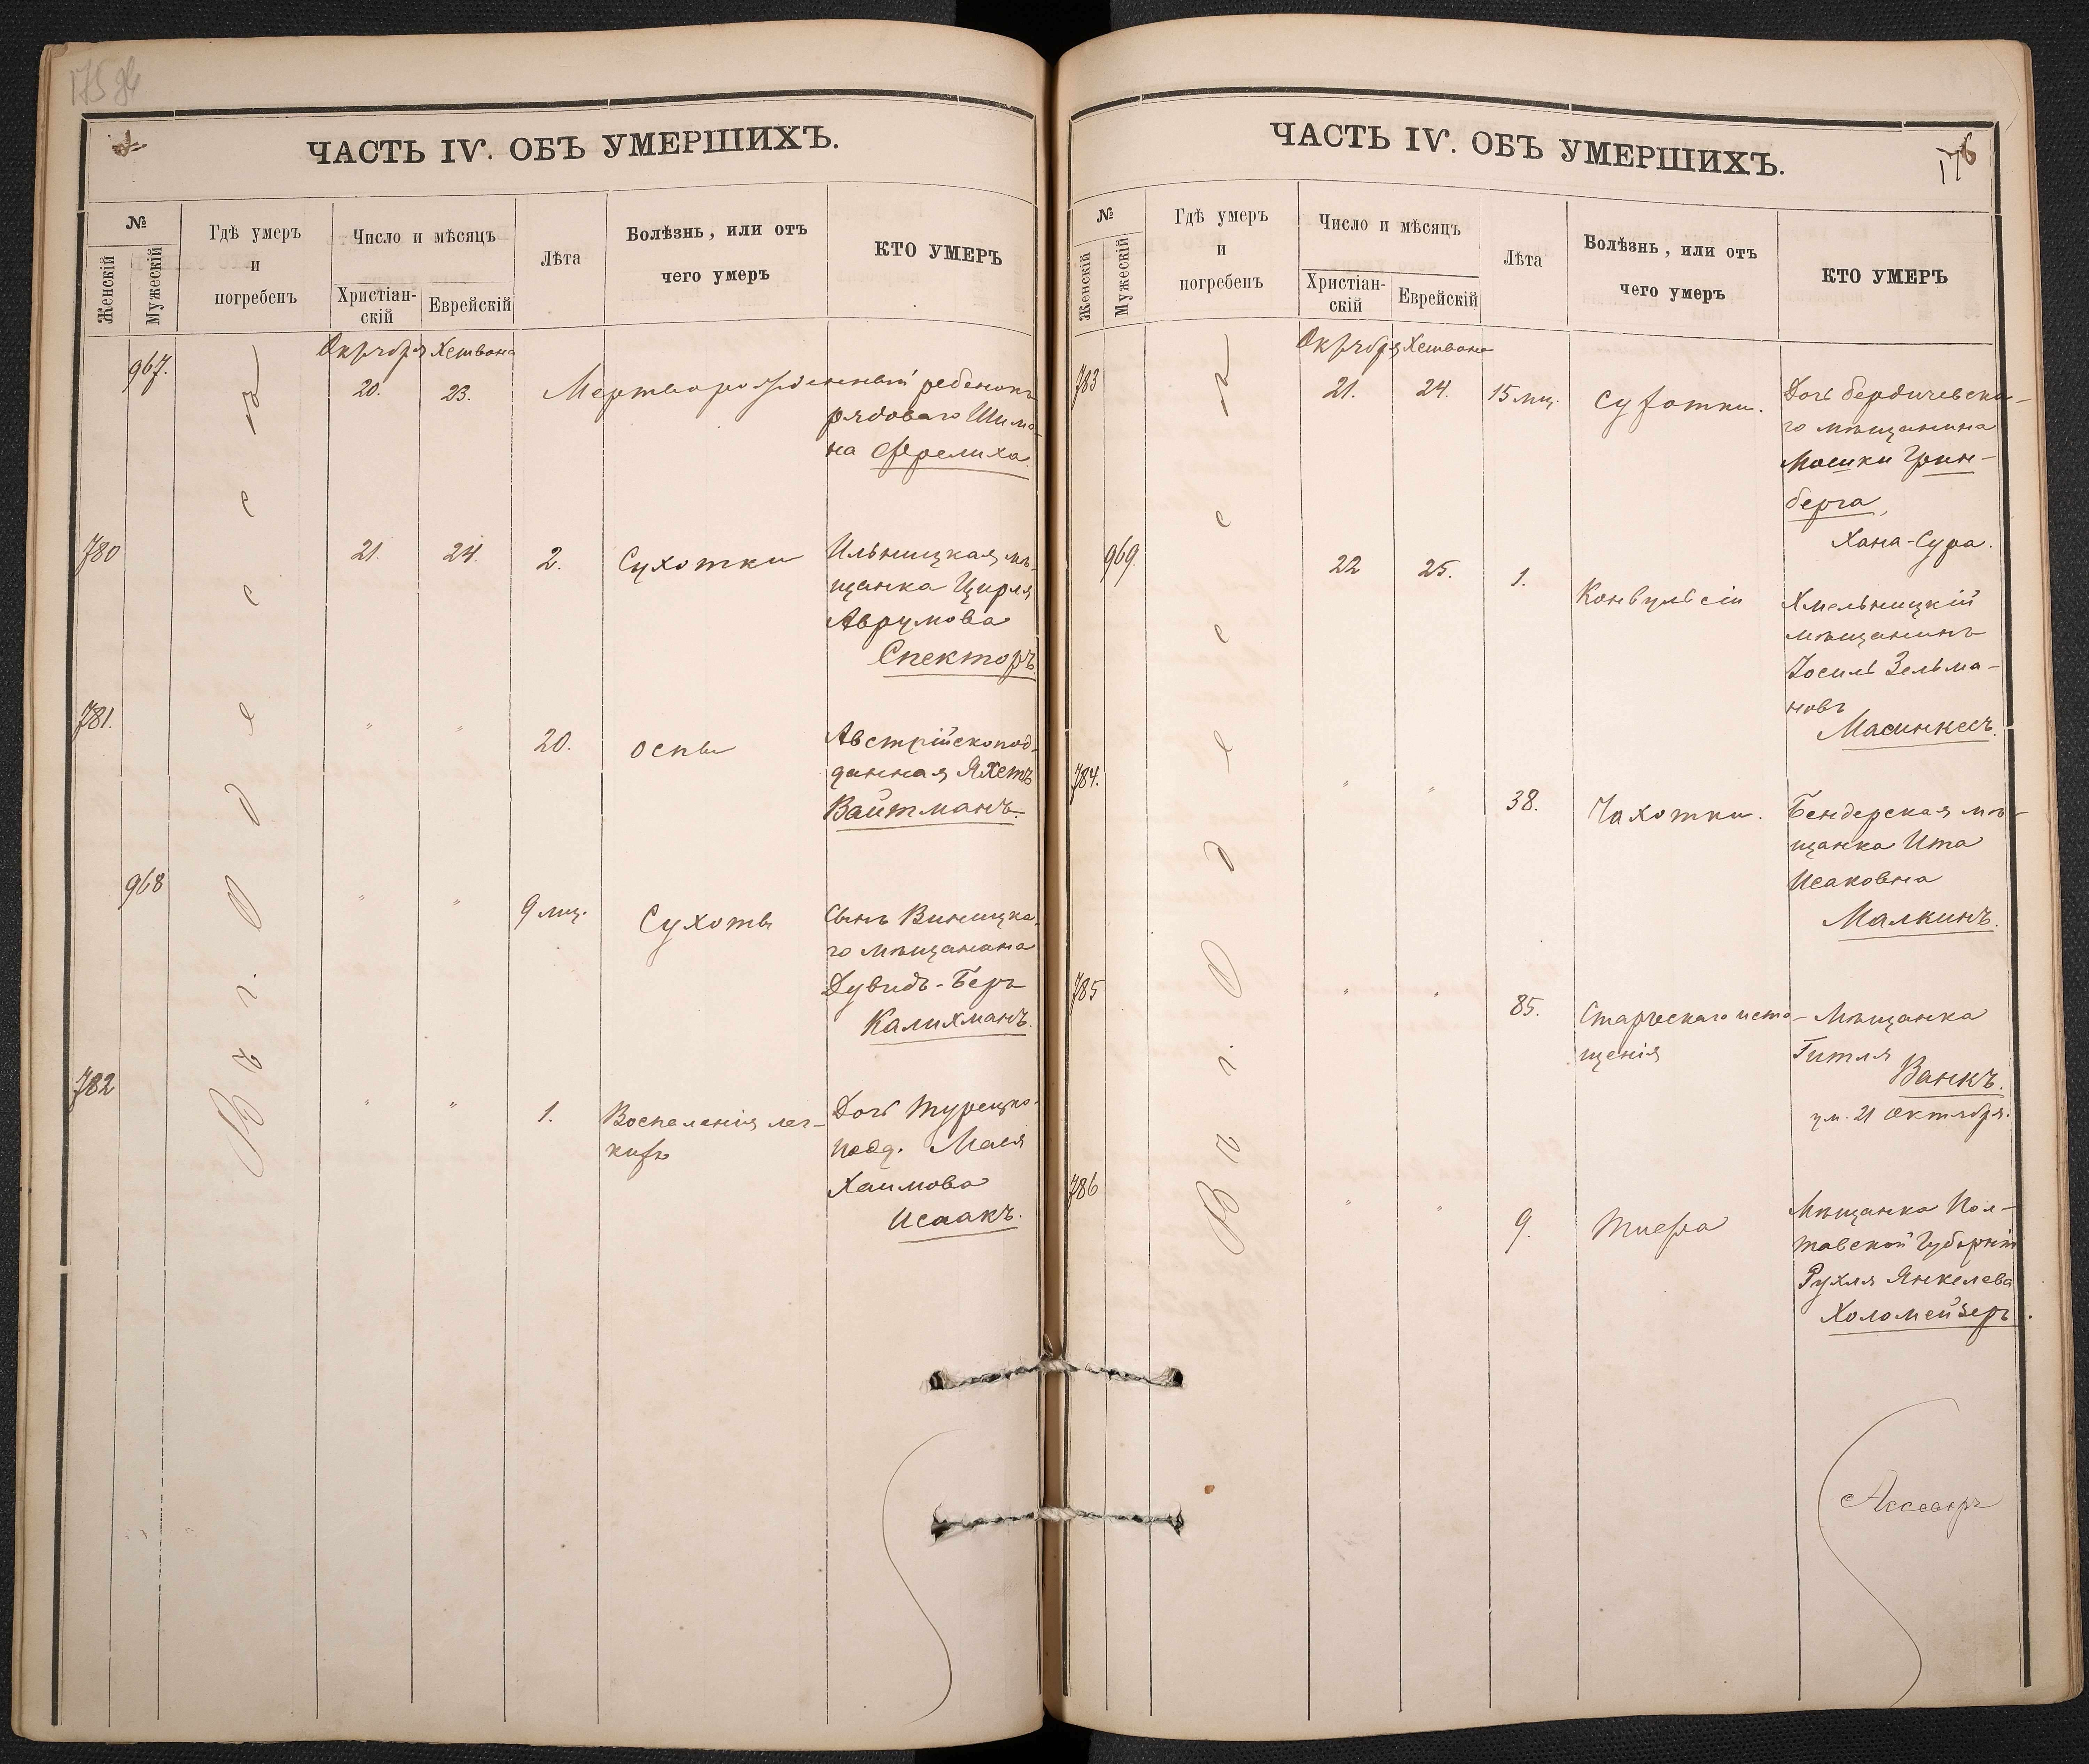 ЧАСТЬ IV. ОБЪ УМЕРШИХЪ.
№
Женскій
Мужескій
Гдѣ умеръ
и
погребенъ
Число и мѣсяцъ
Христіан-
скій
Еврейскій
Лѣта
Болѣзнь, или отъ
чего умеръ
КТО УМЕРЪ
Въ г. Одессѣ
Октября Хешвана
967. 20. 23. Мертворожденный ребенокъ
рядоваго Шимо-
на Фрелиха.
780 21. 24. 2. Сухотки Ильницкая мѣ-
щанка Цирля
Аврумова
Спекторъ.
781. " " 20. Оспы Австрійскопод-
данная Яхетъ
Вайтманъ.
968 " " 9 мц. Сухоты Сынъ Виницка-
го мѣщанина
Дувидъ-Беръ
Калихманъ.
782 " " 1. Воспаленія лег- Дочь турецко-
кихъ подд. Мася
Хаимова
Исаакъ.
ЧАСТЬ IV. ОБЪ УМЕРШИХЪ.
176
№
Женскій
Мужескій
Гдѣ умеръ
и
погребенъ
Число и мѣсяцъ
Христіан-
скій
Еврейскій
Лѣта
Болѣзнь, или отъ
чего умеръ
КТО УМЕРЪ
Въ г. Одессѣ
Октября Хешвана
783 21. 24. 15 мц. Сухотки. Дочь бердичевска-
го мѣщанина
Мошки Грин-
берга,
Хана-Сура.
969. 22 25. 1. Конвульсіи Хмельницкій
мѣщанинъ
Іосиль Зельма-
новъ
Масинкесъ.
784. " " 38. Чахотки. Бендерская мѣ-
щанка Ита
Исаковна
Малкинъ.
785 " " 85. Старческаго исто- Мѣщанка
щенія Гитля
Ванкъ.
ум. 21 октября.
786 " " 9. Тифа Мѣщанка Пол-
тавской Губерніи
Рухля Янкелева
Холомейзеръ.